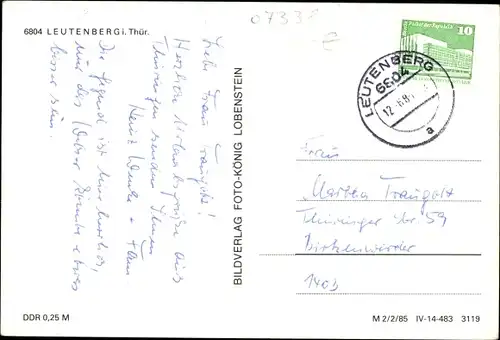 07338
6804 LEUTENBERG i. Thür.
Liebe Frau Traugott!
Herzliche Urlaubsgrüße aus
Thüringen senden Ihnen
Heinz + Fam.
Die Gegend ist wunderbar,
nur das Wetter könnte etwas
besser sein.
BILDVERLAG FOTO-KÖNIG LOBENSTEIN
Palast der Republik
10
DDR
LEUTENBERG
6804
a
Frau
Martha Traugott
Thüringer Str 59
Birkenwerder
1403
DDR 0,25 M
M 2/2/85 IV-14-483 3119